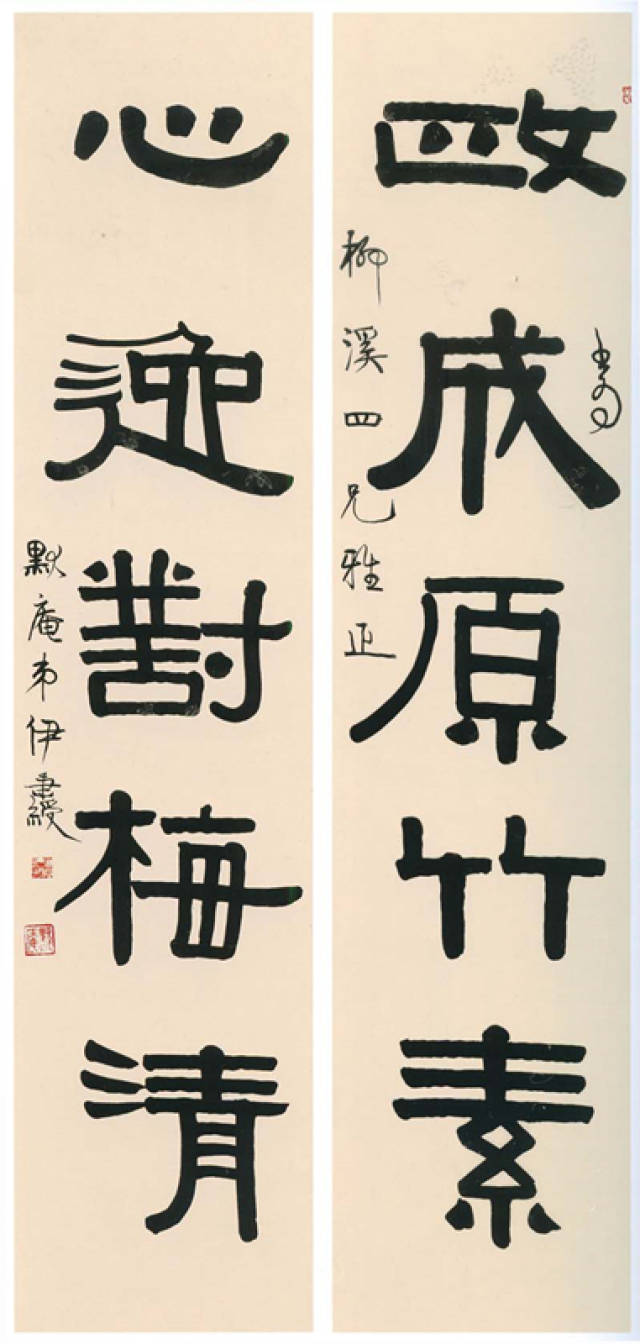 政成原竹素
柳溪四兄雅正
心逸對梅清
默庵弟伊秉綬